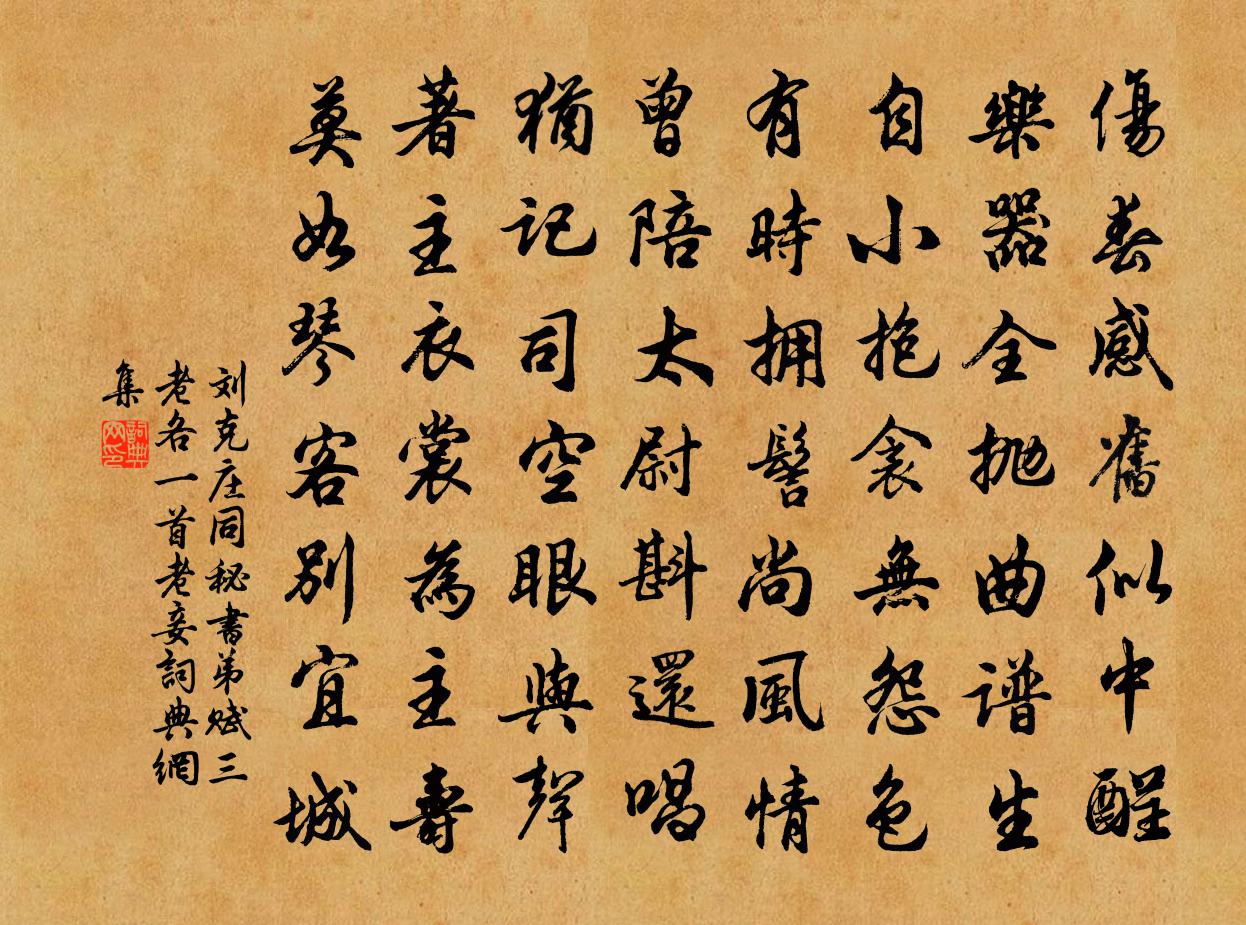 傷春感舊似中酲
樂器全抛曲譜生
自小抱衾無怨色
有時拥髻尚風情
曾陪太尉斟還唱
猶記司空眼與聲
著主衣裳為主壽
莫如琴客别宜城
刘克庄同秘書弟赋三
老各一首老妾詞典網
集
詞典网印